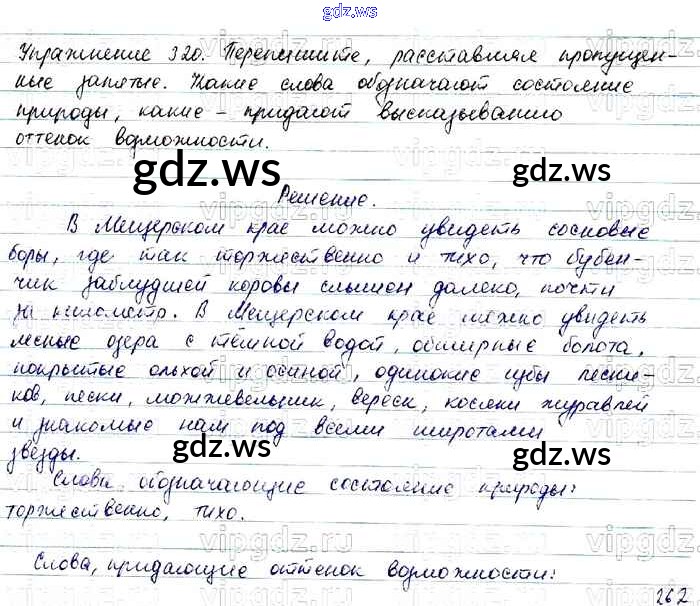 gdz.ws
Упражнение 320. Перепишите, расставляя пропущен-
ные запятые. Какие слова обозначают состояние
природы, какие - придают высказыванию
оттенок возможности.
gdz.ws gdz.ws
Решение.
В Мещерском крае можно увидеть сосновые
боры, где так торжественно и тихо, что бубен-
чик заблудшей коровы слышен далеко, почти
за километр. В Мещерском крае можно увидеть
лесные озера с тёмной водой, обширные болота,
покрытые ольхой и осиной, одинокие избы лесни-
ков, пески, можжевельник, вереск, косяки журавлей
и знакомые нам под всеми широтами
звёзды.
gdz.ws gdz.ws
Слова, обозначающие состояние природы:
торжественно, тихо.
Слова, придающие оттенок возможности:
262